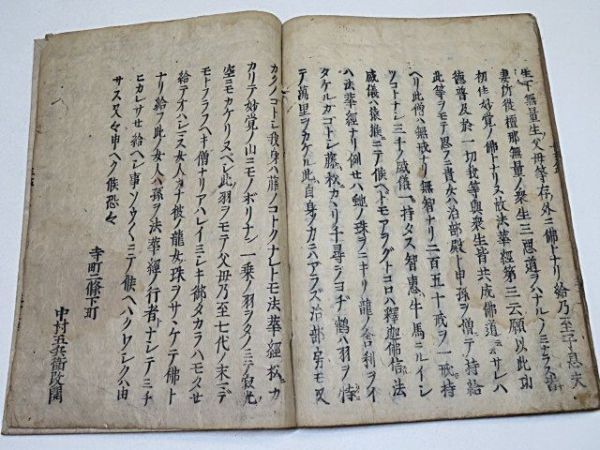 生下無量生ノ父母等存外ニ佛トナリ給乃至子息夫
妻所従檀那無量ノ衆生三惡道ヲハナルヽノミナラス皆
初住妙覺ノ佛トナリヌ故法華經第三云願以此功
德普及於一切我等與衆生皆共成佛道 サレハ
此等ヲモテ思フニ貴女ハ治部殿ト申孫ヲ僧ニテ持給
ヘリ此僧ハ無戒ナリ無智ナリ二百五十戒ヲ一戒持
ツコトナシ三千ノ威儀一持タス智惠牛馬ニルイシ
威儀ハ猿猴ニニテ候ヘトモアヲグトコロハ釋迦佛信法
ハ法華經ナリ例セハ蛇ノ珠ヲニキリ龍ノ舎利ヲイ
タヾクガゴトシ藤松カヽリ千尋ヲヨチ鶴ハ羽ヲ恃
テ萬里ヲカケル此自身ノ力ニハアラス治部房モ又
カクノコトシ我身ハ藤ノコトクナレトモ法華經松カ
カリテ妙覺ノ山ニモノボリナン一乗ノ羽ヲタノミテ寂光
空ニモカケリヌヘシ此羽ヲモテ父母乃至七代ノ末マデ
モトフラフヘキ僧ナリアハレイミシキ御タカラハモタせ
給テオハシマス女人カナ彼龍女珠ヲサヽケテ佛ト
ナリ給フ此女人ハ孫ヲ法華經ノ行者ナシテミチ
ヒカレサせ給ヘシ事〻ソウ〱ニテ候ヘハクワシクハ由
サス又々申ヘク候恐々
寺町二條下町
中村五兵衛改開